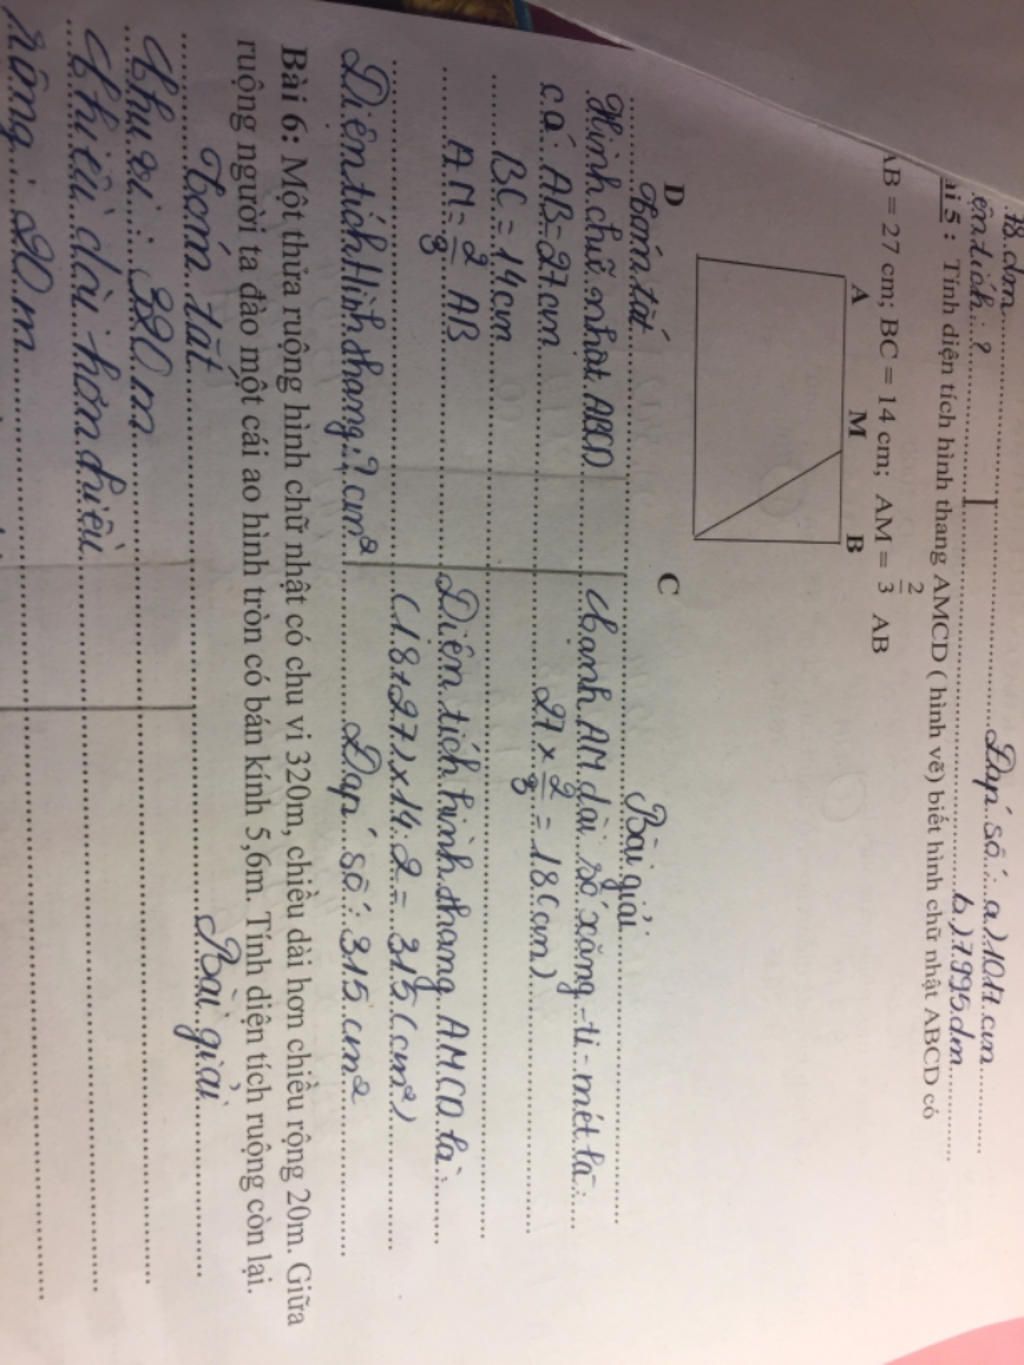 78.dm
ện tích : ?
Đáp số : a) 1017 cm
b) 7,995 dm
ài 5 : Tính diện tích hình thang AMCD ( hình vẽ) biết hình chữ nhật ABCD có
AB = 27 cm; BC = 14 cm; AM = 2/3 AB
A M B
D C
Tóm tắt
Bài giải
Hình chữ nhật ABCD
có : AB = 27 cm
BC = 14 cm
AM = 2/3 AB
Diện tích Hình thang : ? cm²
Cạnh AM dài số xăng-ti-mét là :
27 x 2/3 = 18 (cm)
Diện tích hình thang AMCD là :
(18+27) x 14 : 2 = 315 (cm²)
Đáp số : 315 cm²
Bài 6: Một thửa ruộng hình chữ nhật có chu vi 320m, chiều dài hơn chiều rộng 20m. Giữa
ruộng người ta đào một cái ao hình tròn có bán kính 5,6m. Tính diện tích ruộng còn lại.
Tóm tắt
Bài giải
Chu vi : 320 m
Chiều dài hơn chiều
rộng : 20 m